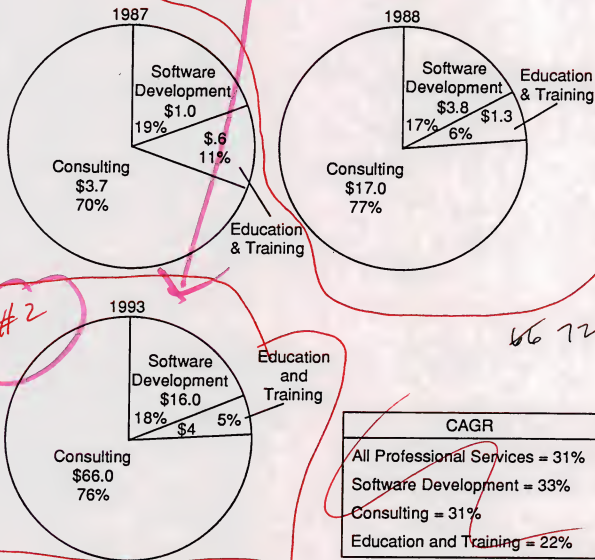 1987
Software
Development
$1.0
19%
$.6
11%
Consulting
$3.7
70%
Education
& Training
1988
Software
Development
$3.8
17%
$1.3
6%
Education
& Training
Consulting
$17.0
77%
#2
1993
Software
Development
$16.0
18%
$4
5%
Education
and
Training
Consulting
$66.0
76%
66 72
CAGR
All Professional Services = 31%
Software Development = 33%
Consulting = 31%
Education and Training = 22%